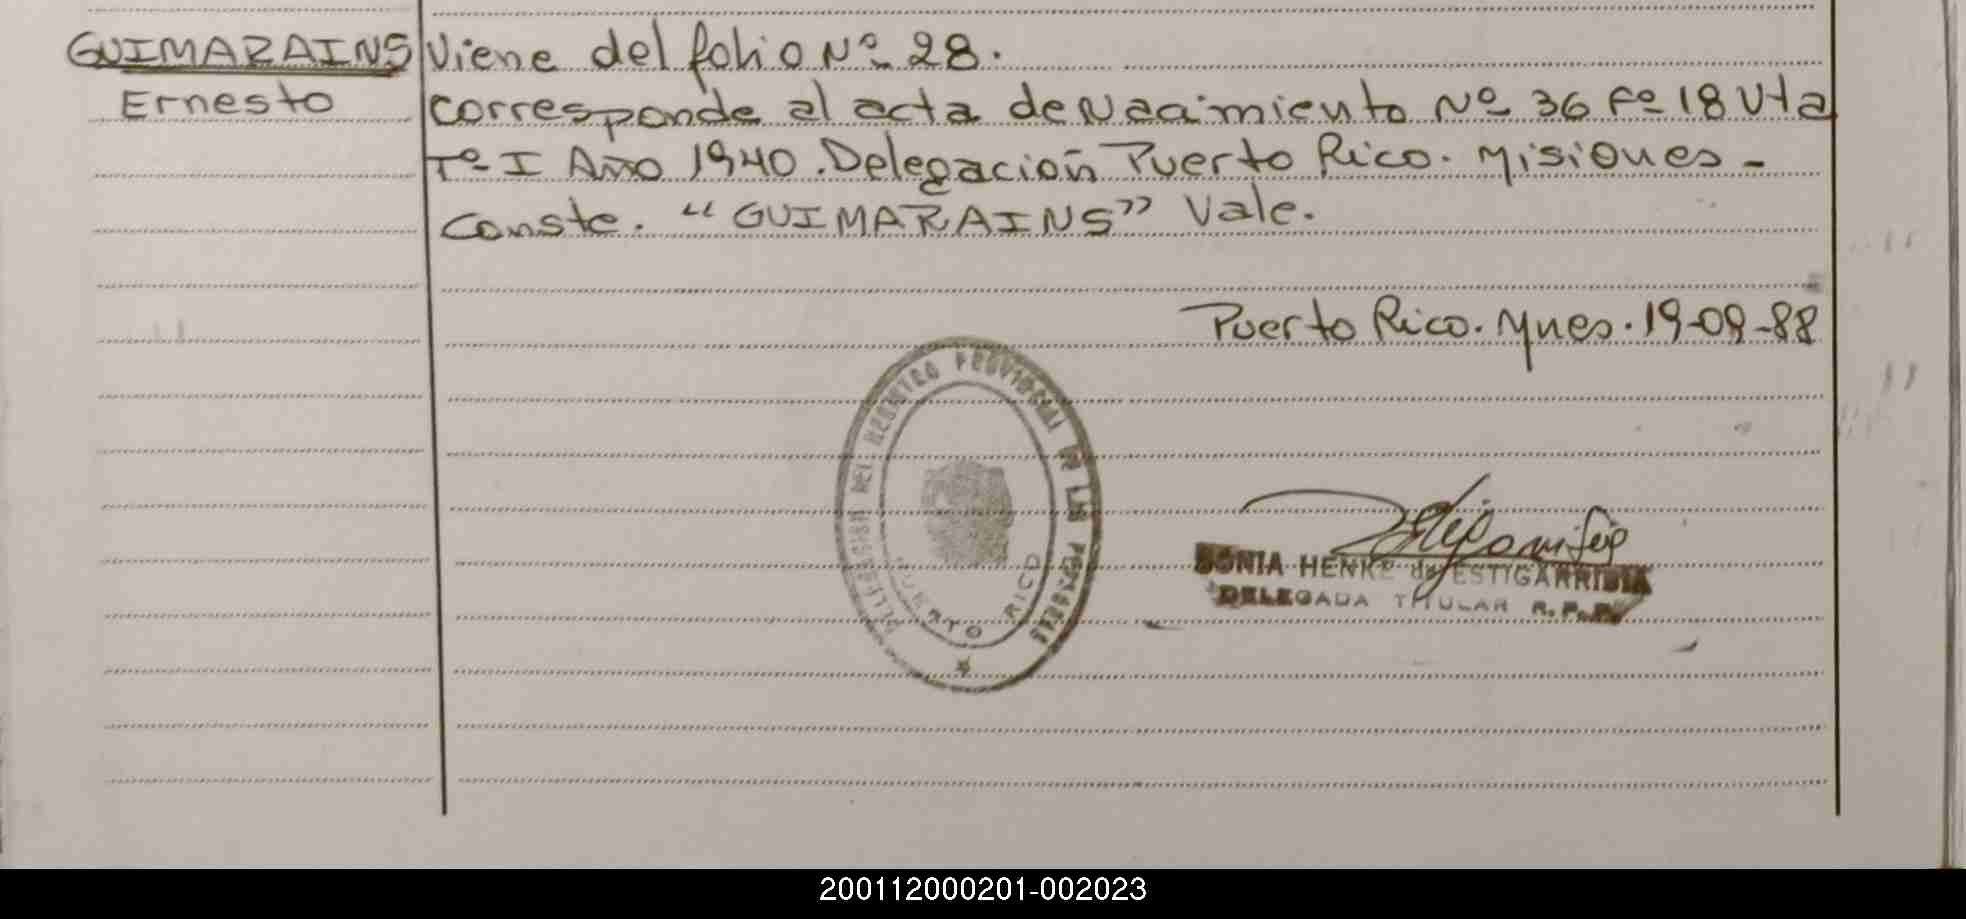 GUIMARAINS
Ernesto
Viene del folio Nº 28.
corresponde al acta de Nacimiento Nº 36 Fº 18 Vta
Tº I Año 1940. Delegación Puerto Rico. Misiones -
Conste. “GUIMARAINS” Vale.
Puerto Rico. Mnes. 19-09-88
DELEGACION DEL REGISTRO PROVINCIAL DE LAS PERSONAS
PUERTO RICO
SONIA HENKE de ESTIGARRIBIA
DELEGADA TITULAR R.P.P.
200112000201-002023